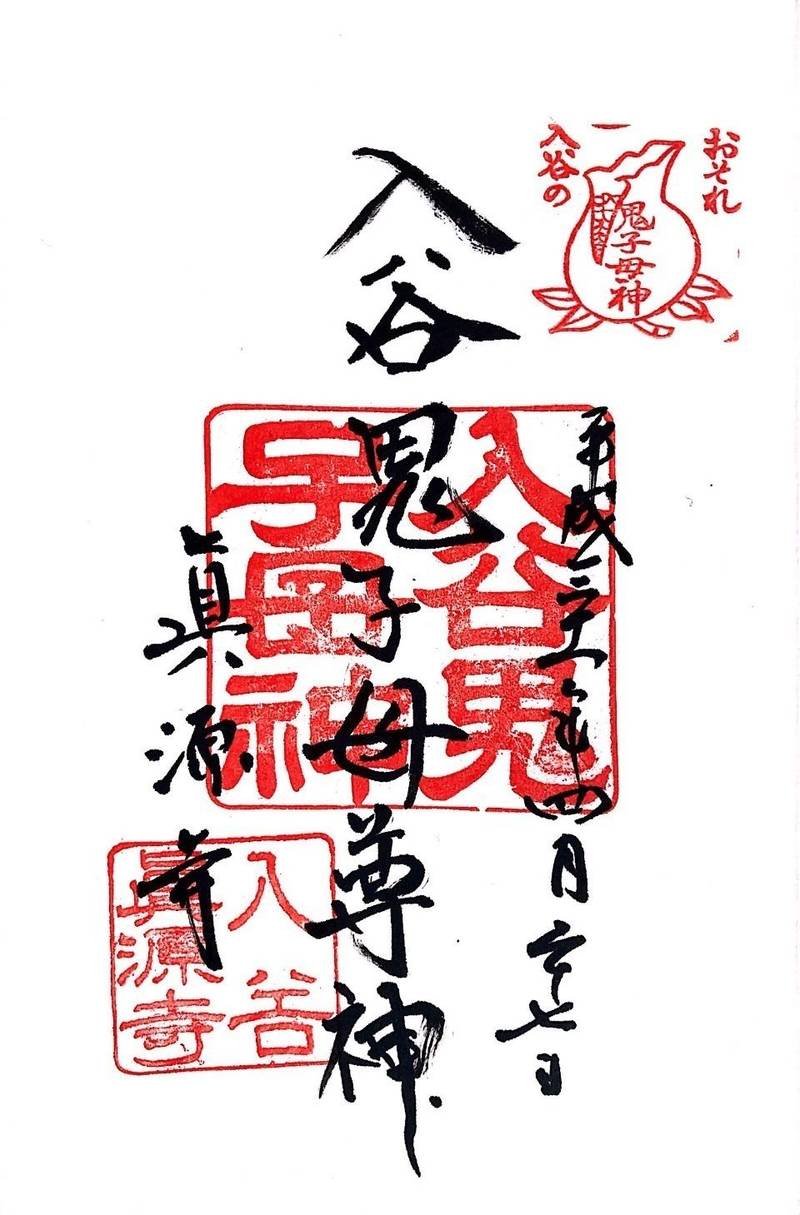 おそれ
入谷の
鬼子母神
平成三十一年四月二十七日
入谷鬼子母尊神
眞源寺
入谷鬼
子母神
入谷
眞源寺